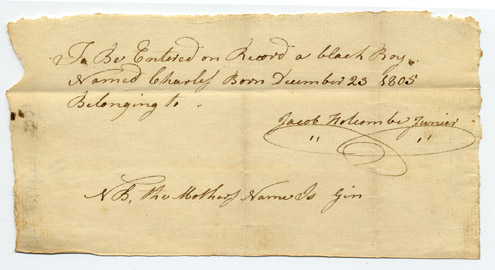 To Be Entered on Record a black Boy
Named Charles Born December 23 1805
Belonging to
Jacob Holcombe Junier
" "
NB, the Mothers Name Is Gin